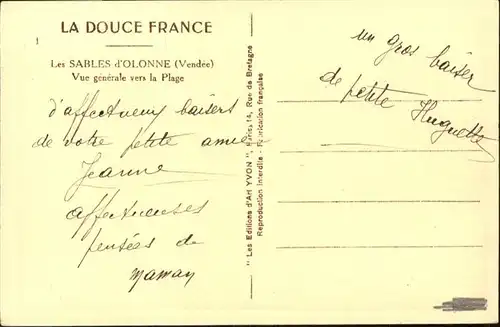 LA DOUCE FRANCE
Les SABLES d'OLONNE (Vendée)
Vue générale vers la Plage
d'affectueux baisers
de votre petite amie
Jeanne
affectueuses
pensées de
maman
" Les Editions d'Art YVON ", Paris, 14, Rue de Bretagne
Reproduction Interdite - Fabrication française
un gros baiser
de petite
Huguette